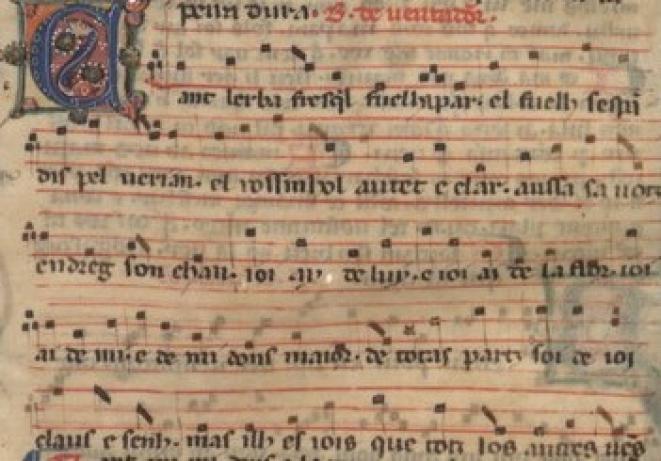 penri dura. B. de uentador.
Cant lerba fresqil fuelhapar. el fuelh sespan
dis pel uerian. el rossinhol autet e clar. aussa sa uotz
endreg son chan. ioi ai de luy. e ioi ai de la flor. ioi
ai de mi. e de mi dons maior. de totas partz soi de ioi
claus e senh. mas ilh es iois que totz los autres uens